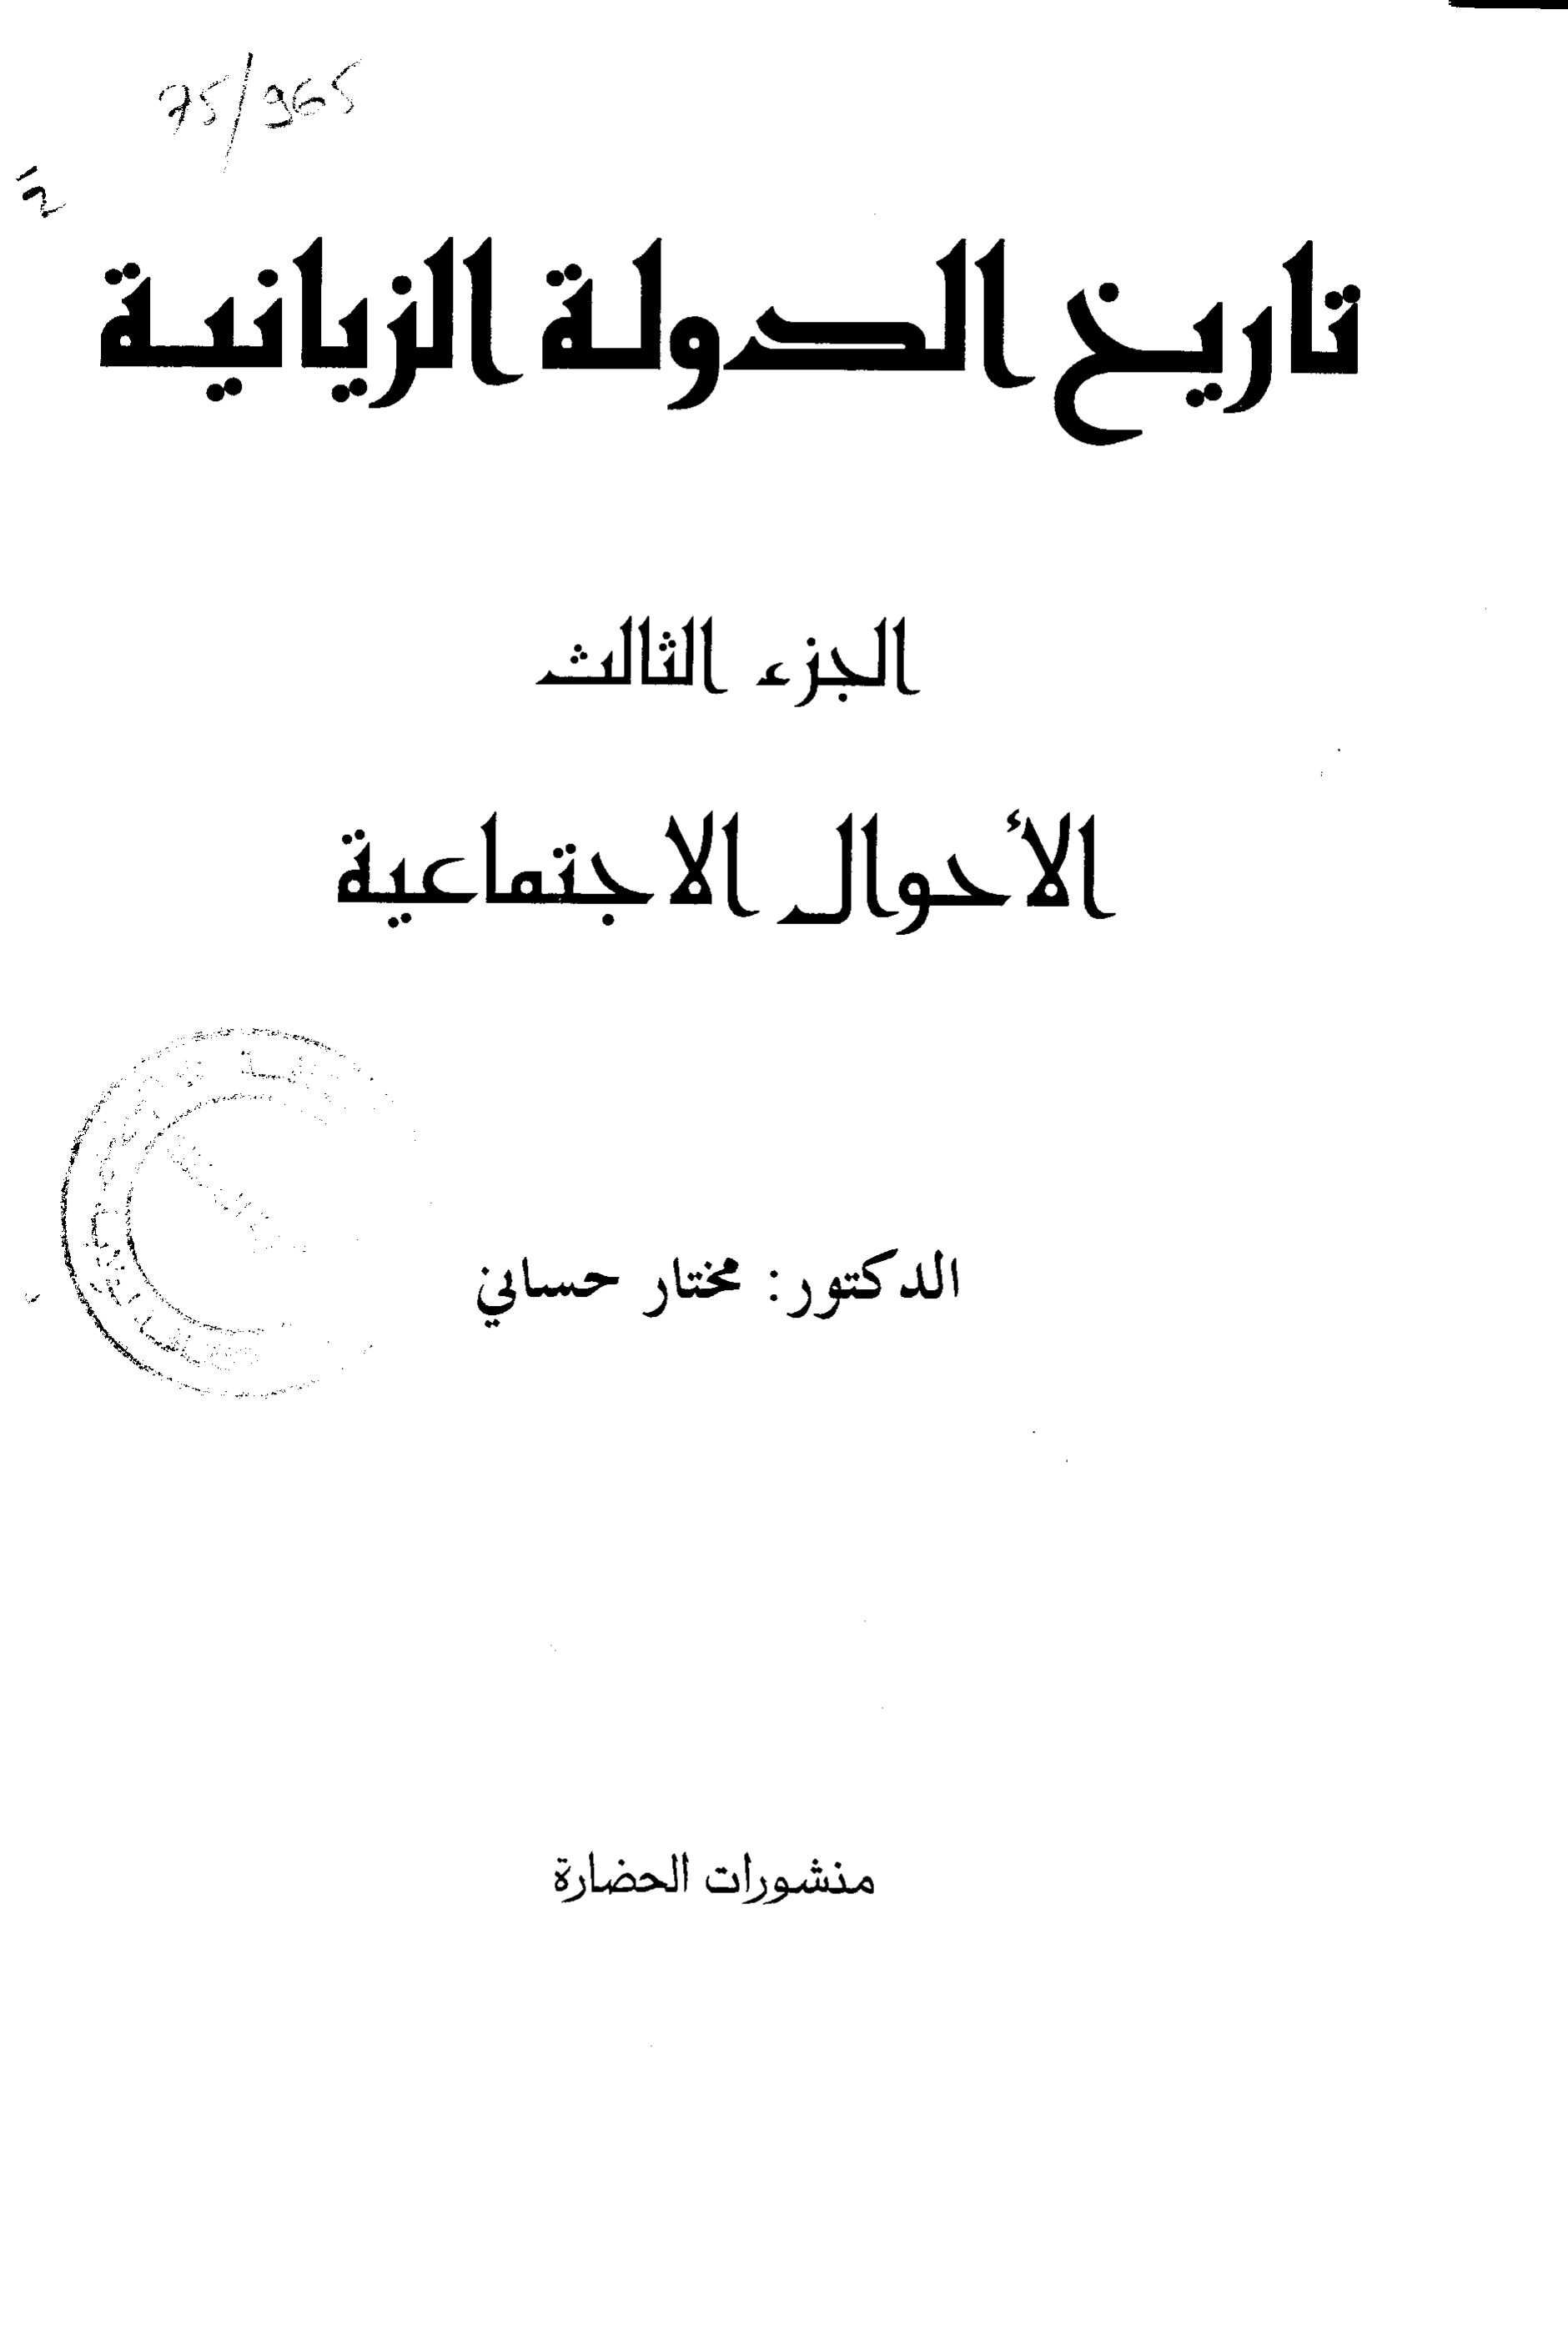 75/965
تاريخ الدولة الزيانية
الجزء الثالث
الأحوال الاجتماعية
الدكتور: مختار حساني
منشورات الحضارة